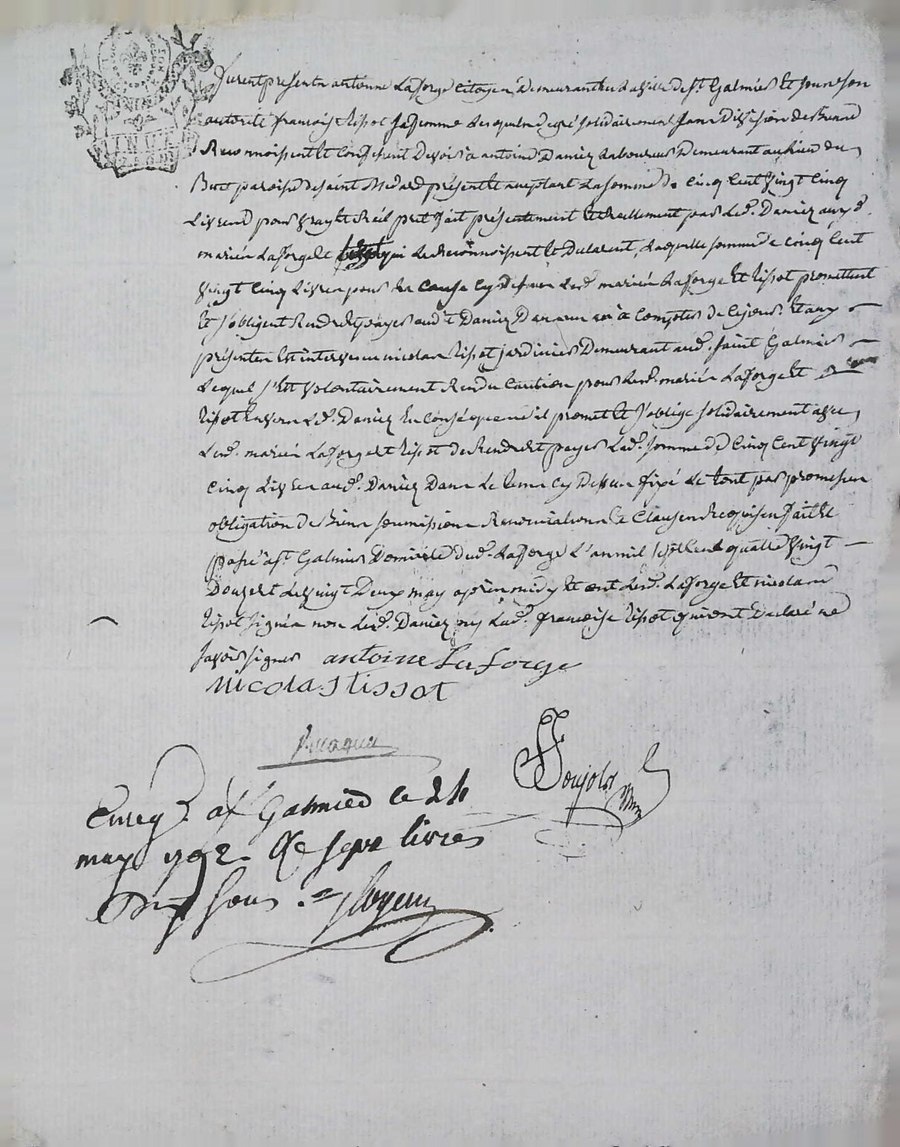 Furent presents antoine Laforge Citoyen Demeurant en la ville de st Galmier Et sous son
autorité francoise Tissot sa femme Lesquels de gré solidairement sans Division de Biens
Reconnoissent et Confessent Devoir à antoine Daniez Laboureur Demeurant au lieu du
Buct paroisse de saint Medard présent et acceptant La somme de Cinq Cent vingt Cinq
Livres pour vray et Réel prêt fait présentement et Reellement par led. Daniez auxd.
mariés Laforge et qui Le Reconnoissent et Declarent, Laquelle somme de Cinq Cent
vingt Cinq Livres pour les Cause cy Dessus Lesd. mariés Laforge Et Tissot promettent
Et s'obligent Rendre et payer aud. Daniez Dans un an à Compter de Cejour. Et aux
présentes Est intervenu nicolas Tissot jardinier Demeurant aud. saint Galmier
Lequel s'Est volontairement Rendu Caution pour lesd. mariés Laforge Et
Tissot Envers Led. Daniez En Conséquence il promet Et s'oblige solidairement avec
Lesd. mariés Laforge et Tissot de Rendre et payer Lad. somme de Cinq Cent vingt
Cinq Livres aud. Daniez Dans Le terme cy Dessus fixé Le tout par promesses
obligation de Biens soumissions Renonciations & Clauses Requises fait et
passé a st. Galmier Domicile dud. Laforge L'an mil sept Cent quatre vingt
Douze et Le vingt Deux may après midy Et ont Lesd. Laforge Et nicolas
Tissot signés non Led. Daniez ny Lad. francoise Tissot qui ont Declaré ne
savoir signer antoine Laforge
nicolas tissot
Enreg. a st Galmier le 24
may 1792. Re sept livres
Dix sous